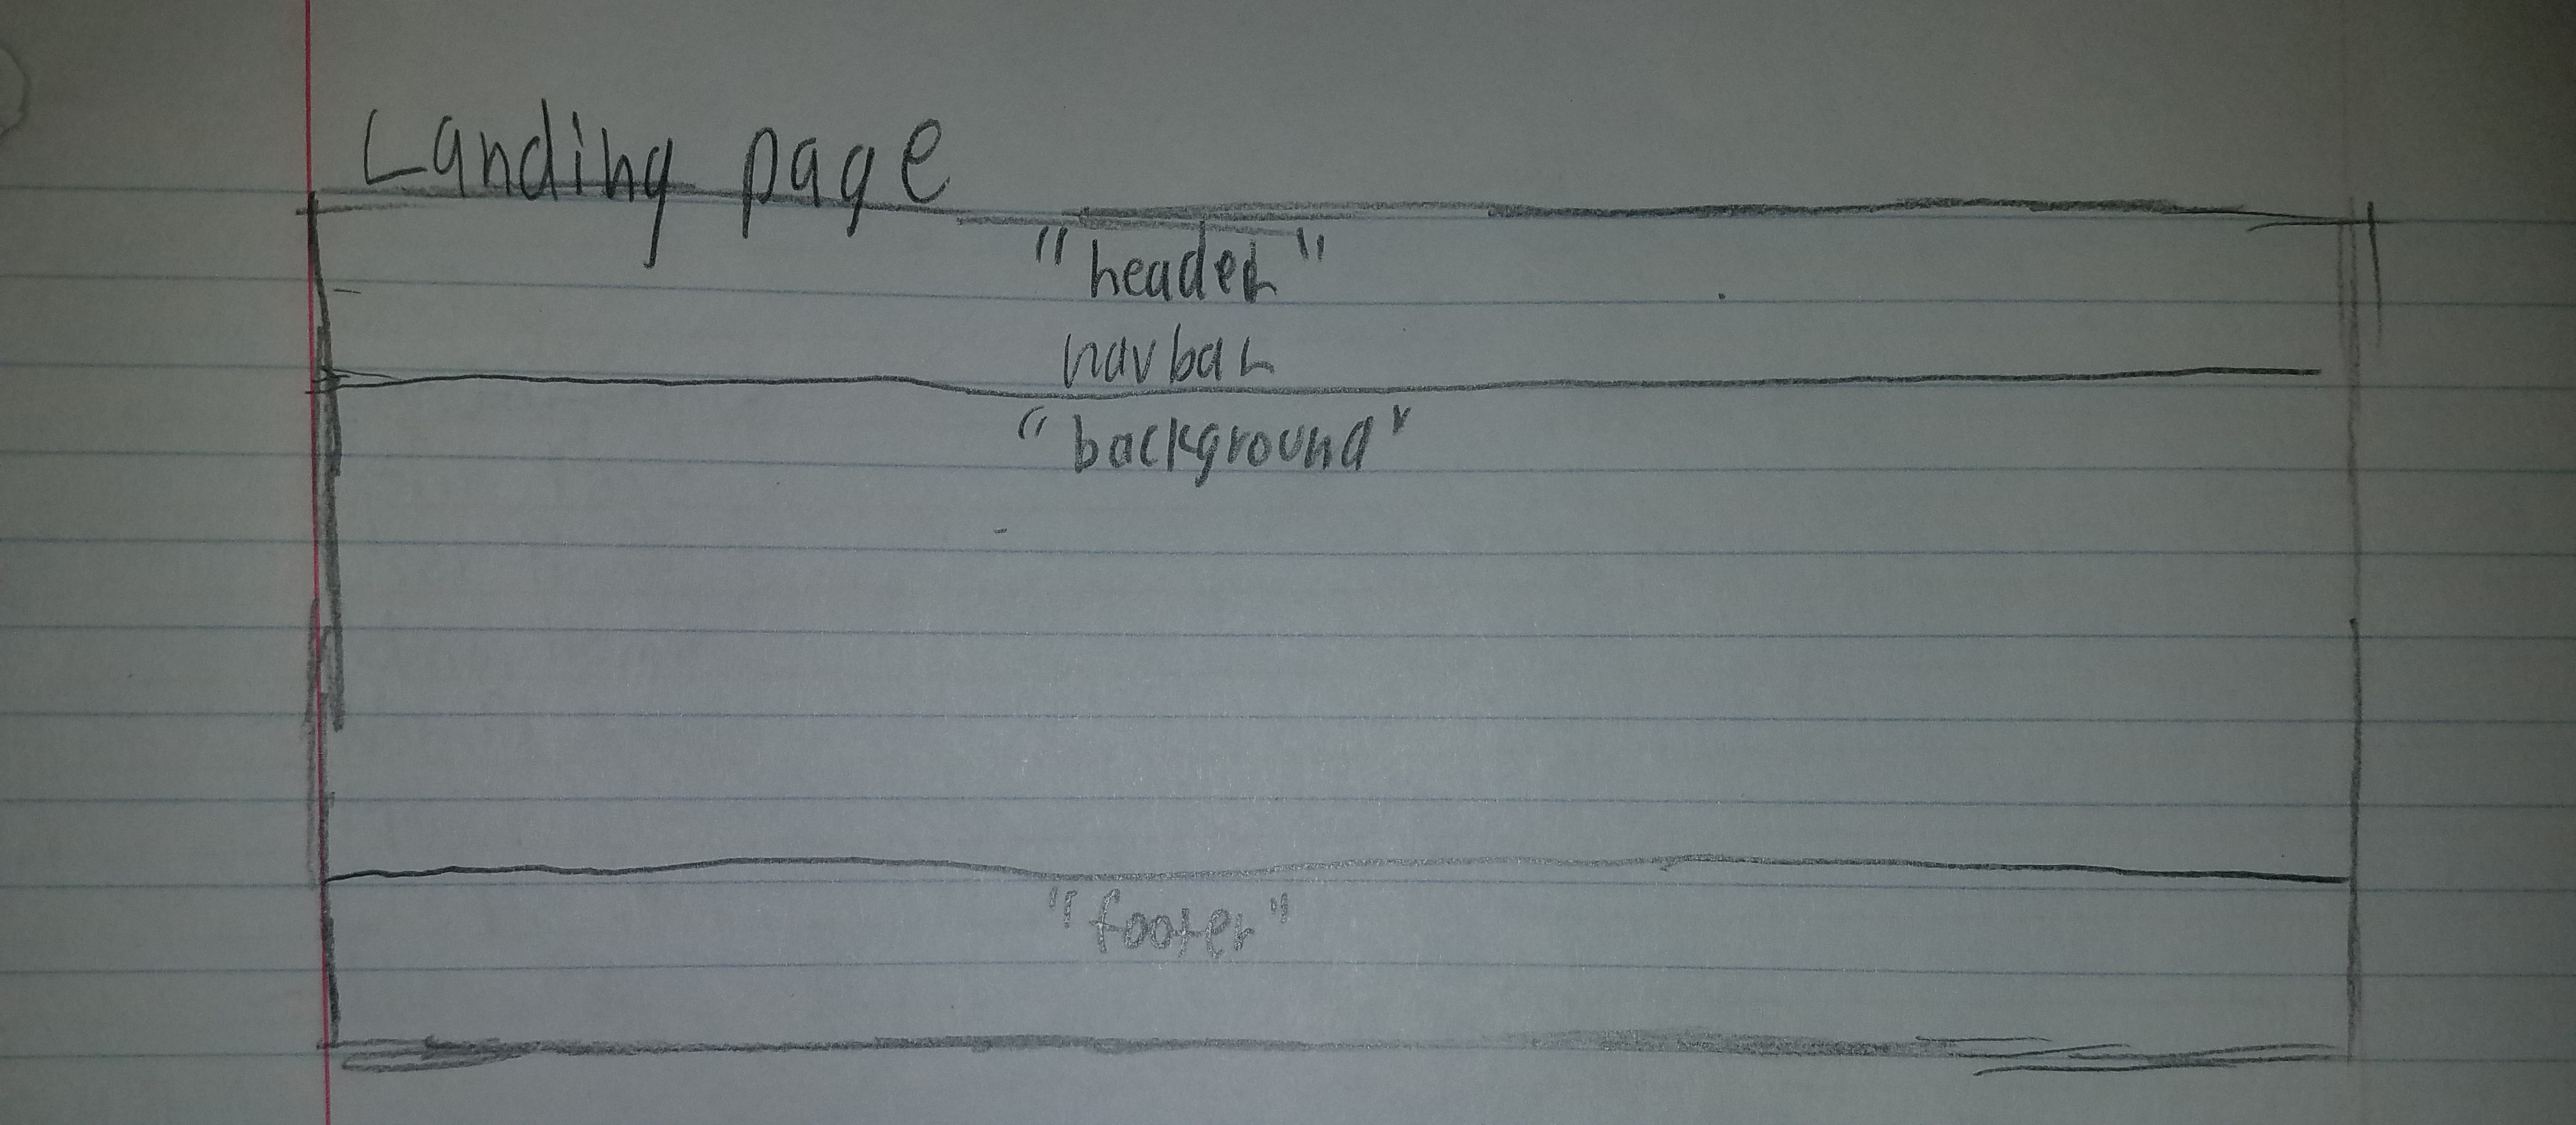 Landing page
"header"
navbar
"background"
"footer"